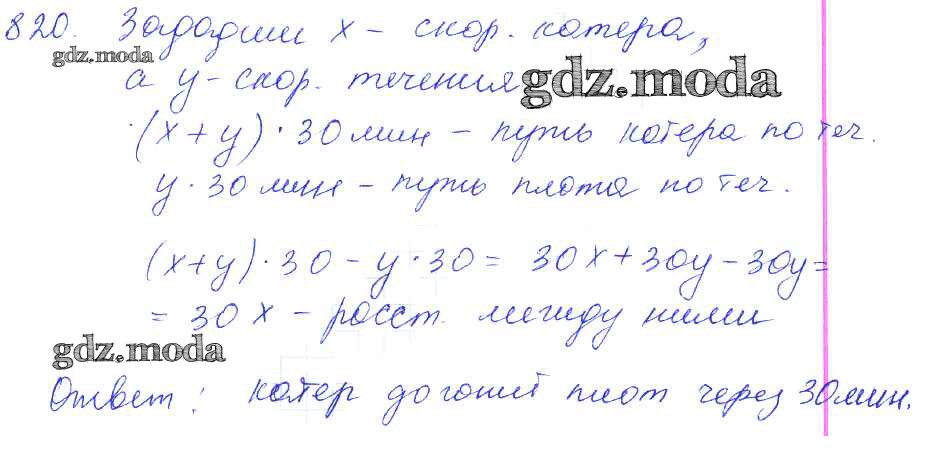 820. Зададим x - скор. катера,
gdz.moda
а y - скор. течения
gdz.moda
(x + y) · 30 мин - путь катера по теч.
y · 30 мин - путь плота по теч.
(x+y) · 30 - y · 30 = 30x + 30y - 30y =
= 30x - расст. между ними
gdz.moda
Ответ: катер догонит плот через 30 мин.